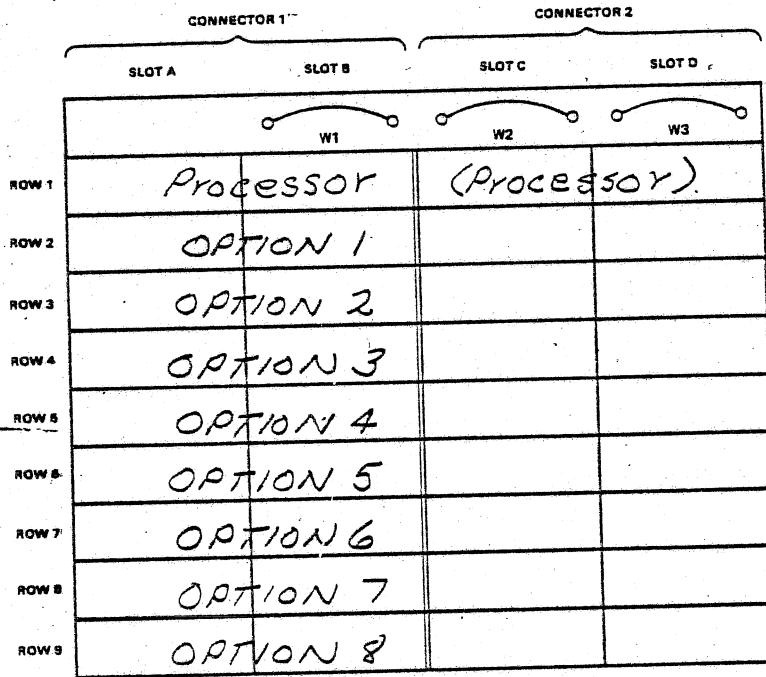 CONNECTOR 1 CONNECTOR 2
SLOT A SLOT B SLOT C SLOT D
W1 W2 W3
ROW 1 Processor (Processor).
ROW 2 OPTION 1
ROW 3 OPTION 2
ROW 4 OPTION 3
ROW 5 OPTION 4
ROW 6 OPTION 5
ROW 7 OPTION 6
ROW 8 OPTION 7
ROW 9 OPTION 8